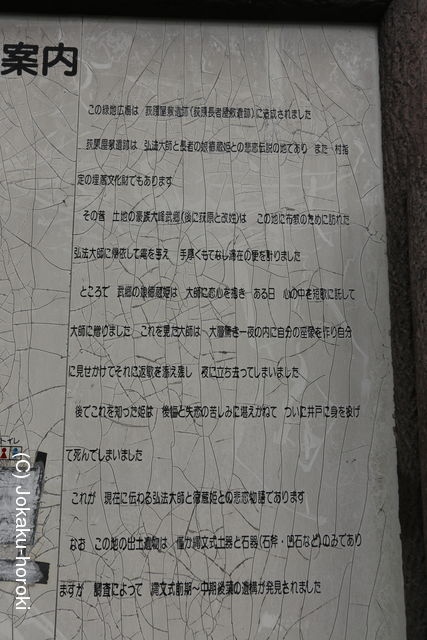 案内
この緑地広場は 荻原屋敷遺跡(荻原長者屋敷遺跡)に造成されました
荻原屋敷遺跡は 弘法大師と長者の娘徳蔵姫との悲恋伝説の地であり また 村指
定の埋蔵文化財でもあります
その昔 土地の豪族大峰武郷(後に荻原と改姓)は この地に布教のために訪れた
弘法大師に帰依して庵を与え 手厚くもてなし滞在の便を計りました
ところで 武郷の娘徳蔵姫は 大師に恋心を抱き ある日 心の中を短歌に託して
大師に贈りました これを見た大師は 大層驚き一夜の内に自分の座像を作り自分
に見せかけてそれに返歌を添え残し 夜に立ち去ってしまいました
後でこれを知った姫は 後悔と失恋の苦しみに堪えかねて ついに井戸に身を投げ
て死んでしまいました
これが 現在に伝わる弘法大師と徳蔵姫との悲恋物語であります
なお この地の出土遺物は 僅か縄文式土器と石器(石斧・凹石など)のみであり
ますが 調査によって 縄文式前期~中期後葉の遺構が発見されました
トイレ
(C) Jokaku-horoki